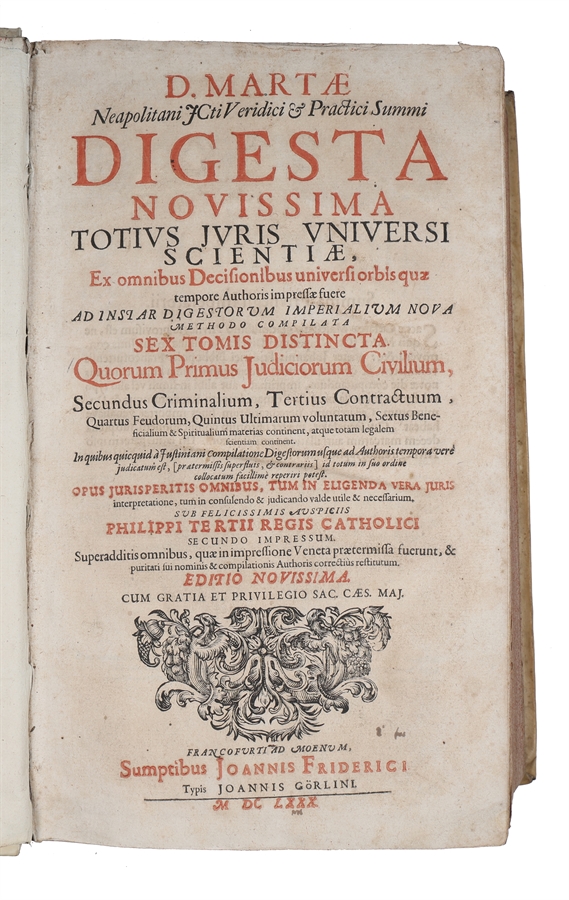 D. MARTÆ
Neapolitani JCti Veridici & Practici Summi
DIGESTA
NOVISSIMA
TOTIVS JVRIS VNIVERSI
SCIENTIÆ,
Ex omnibus Decisionibus universi orbis quæ
tempore Authoris impressæ fuere
AD INSTAR DIGESTORVM IMPERIALIVM NOVA
METHODO COMPILATA
SEX TOMIS DISTINCTA.
Quorum Primus Judiciorum Civilium,
Secundus Criminalium, Tertius Contractuum,
Quartus Feudorum, Quintus Ultimarum voluntatum, Sextus Bene-
ficialium & Spiritualium materias continent, atque totam legalem
scientiam continent.
In quibus quicquid à Justiniani compilatione Digestorum usque ad Authoris tempora verè
judicatum est, [prætermissis superfluis, & contrariis] id totum in suo ordine
collocatum facillimè reperiri potest.
OPUS JURISPERITIS OMNIBUS, TUM IN ELIGENDA VERA JURIS
interpretatione, tum in consulendo & judicando valde utile & necessarium,
SVB FELICISSIMIS AVSPICIIS
PHILIPPI TERTII REGIS CATHOLICI
SECUNDO IMPRESSUM.
Superadditis omnibus, quæ in impressione Veneta prætermissa fuerunt, &
puritati sui nominis & compilationis Authoris correctius restitutum.
EDITIO NOVISSIMA.
CUM GRATIA ET PRIVILEGIO SAC. CÆS. MAJ.
FRANCOFURTI AD MOENUM,
Sumptibus JOANNIS FRIDERICI
Typis JOANNIS GÖRLINI.
M DC LXXX.